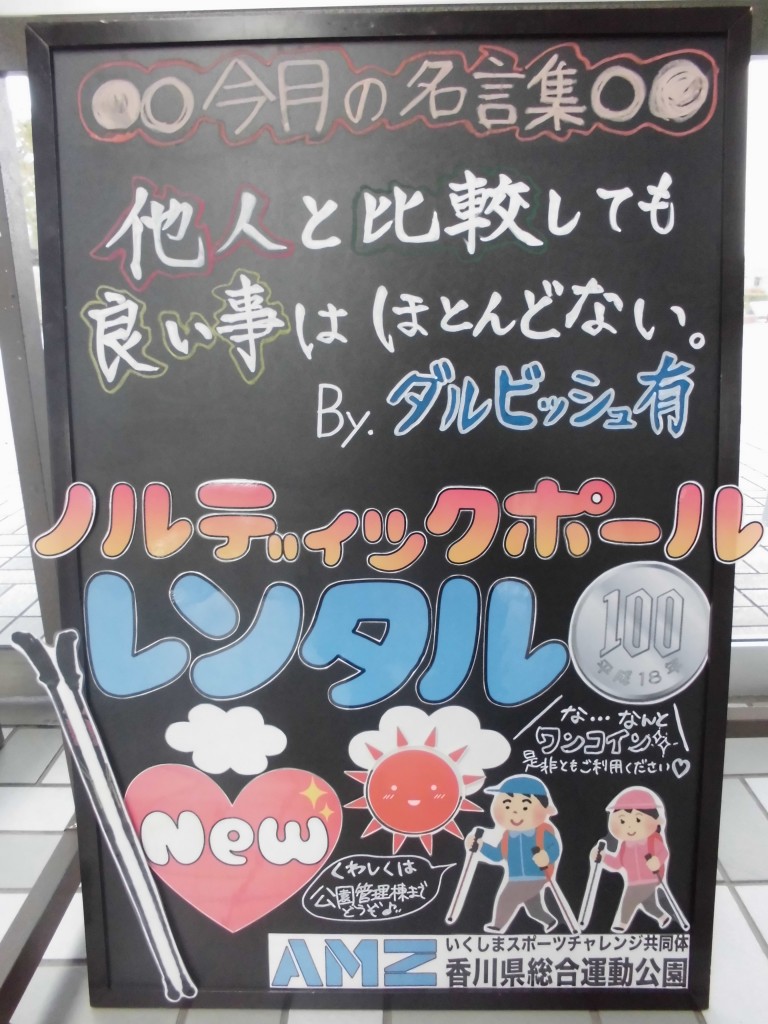 ●○今月の名言集○●
他人と比較しても
良い事は ほとんどない。
By. ダルビッシュ有
ノルディックポール
レンタル
100
平成18年
な…なんと
ワンコイン
是非ともご利用ください♡
New
くわしくは
公園管理棟まで
どうぞ♪
AMZ
いくしまスポーツチャレンジ共同体
香川県総合運動公園